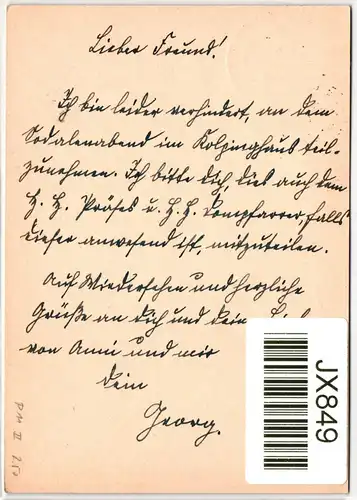 Lieber Freund!
Ich bin leider verhindert, an dem
Sodalenabend im Kolpinghaus teil-
zunehmen. Ich bitte Dich, dies auch dem
H. H. Präses u. H. H. Dompfarrer, falls
dieser anwesend ist, mitzuteilen.
Auf Wiedersehen und herzliche
Grüße an Dich und deine
von Anni und mir
Dein
Georg.
JX849